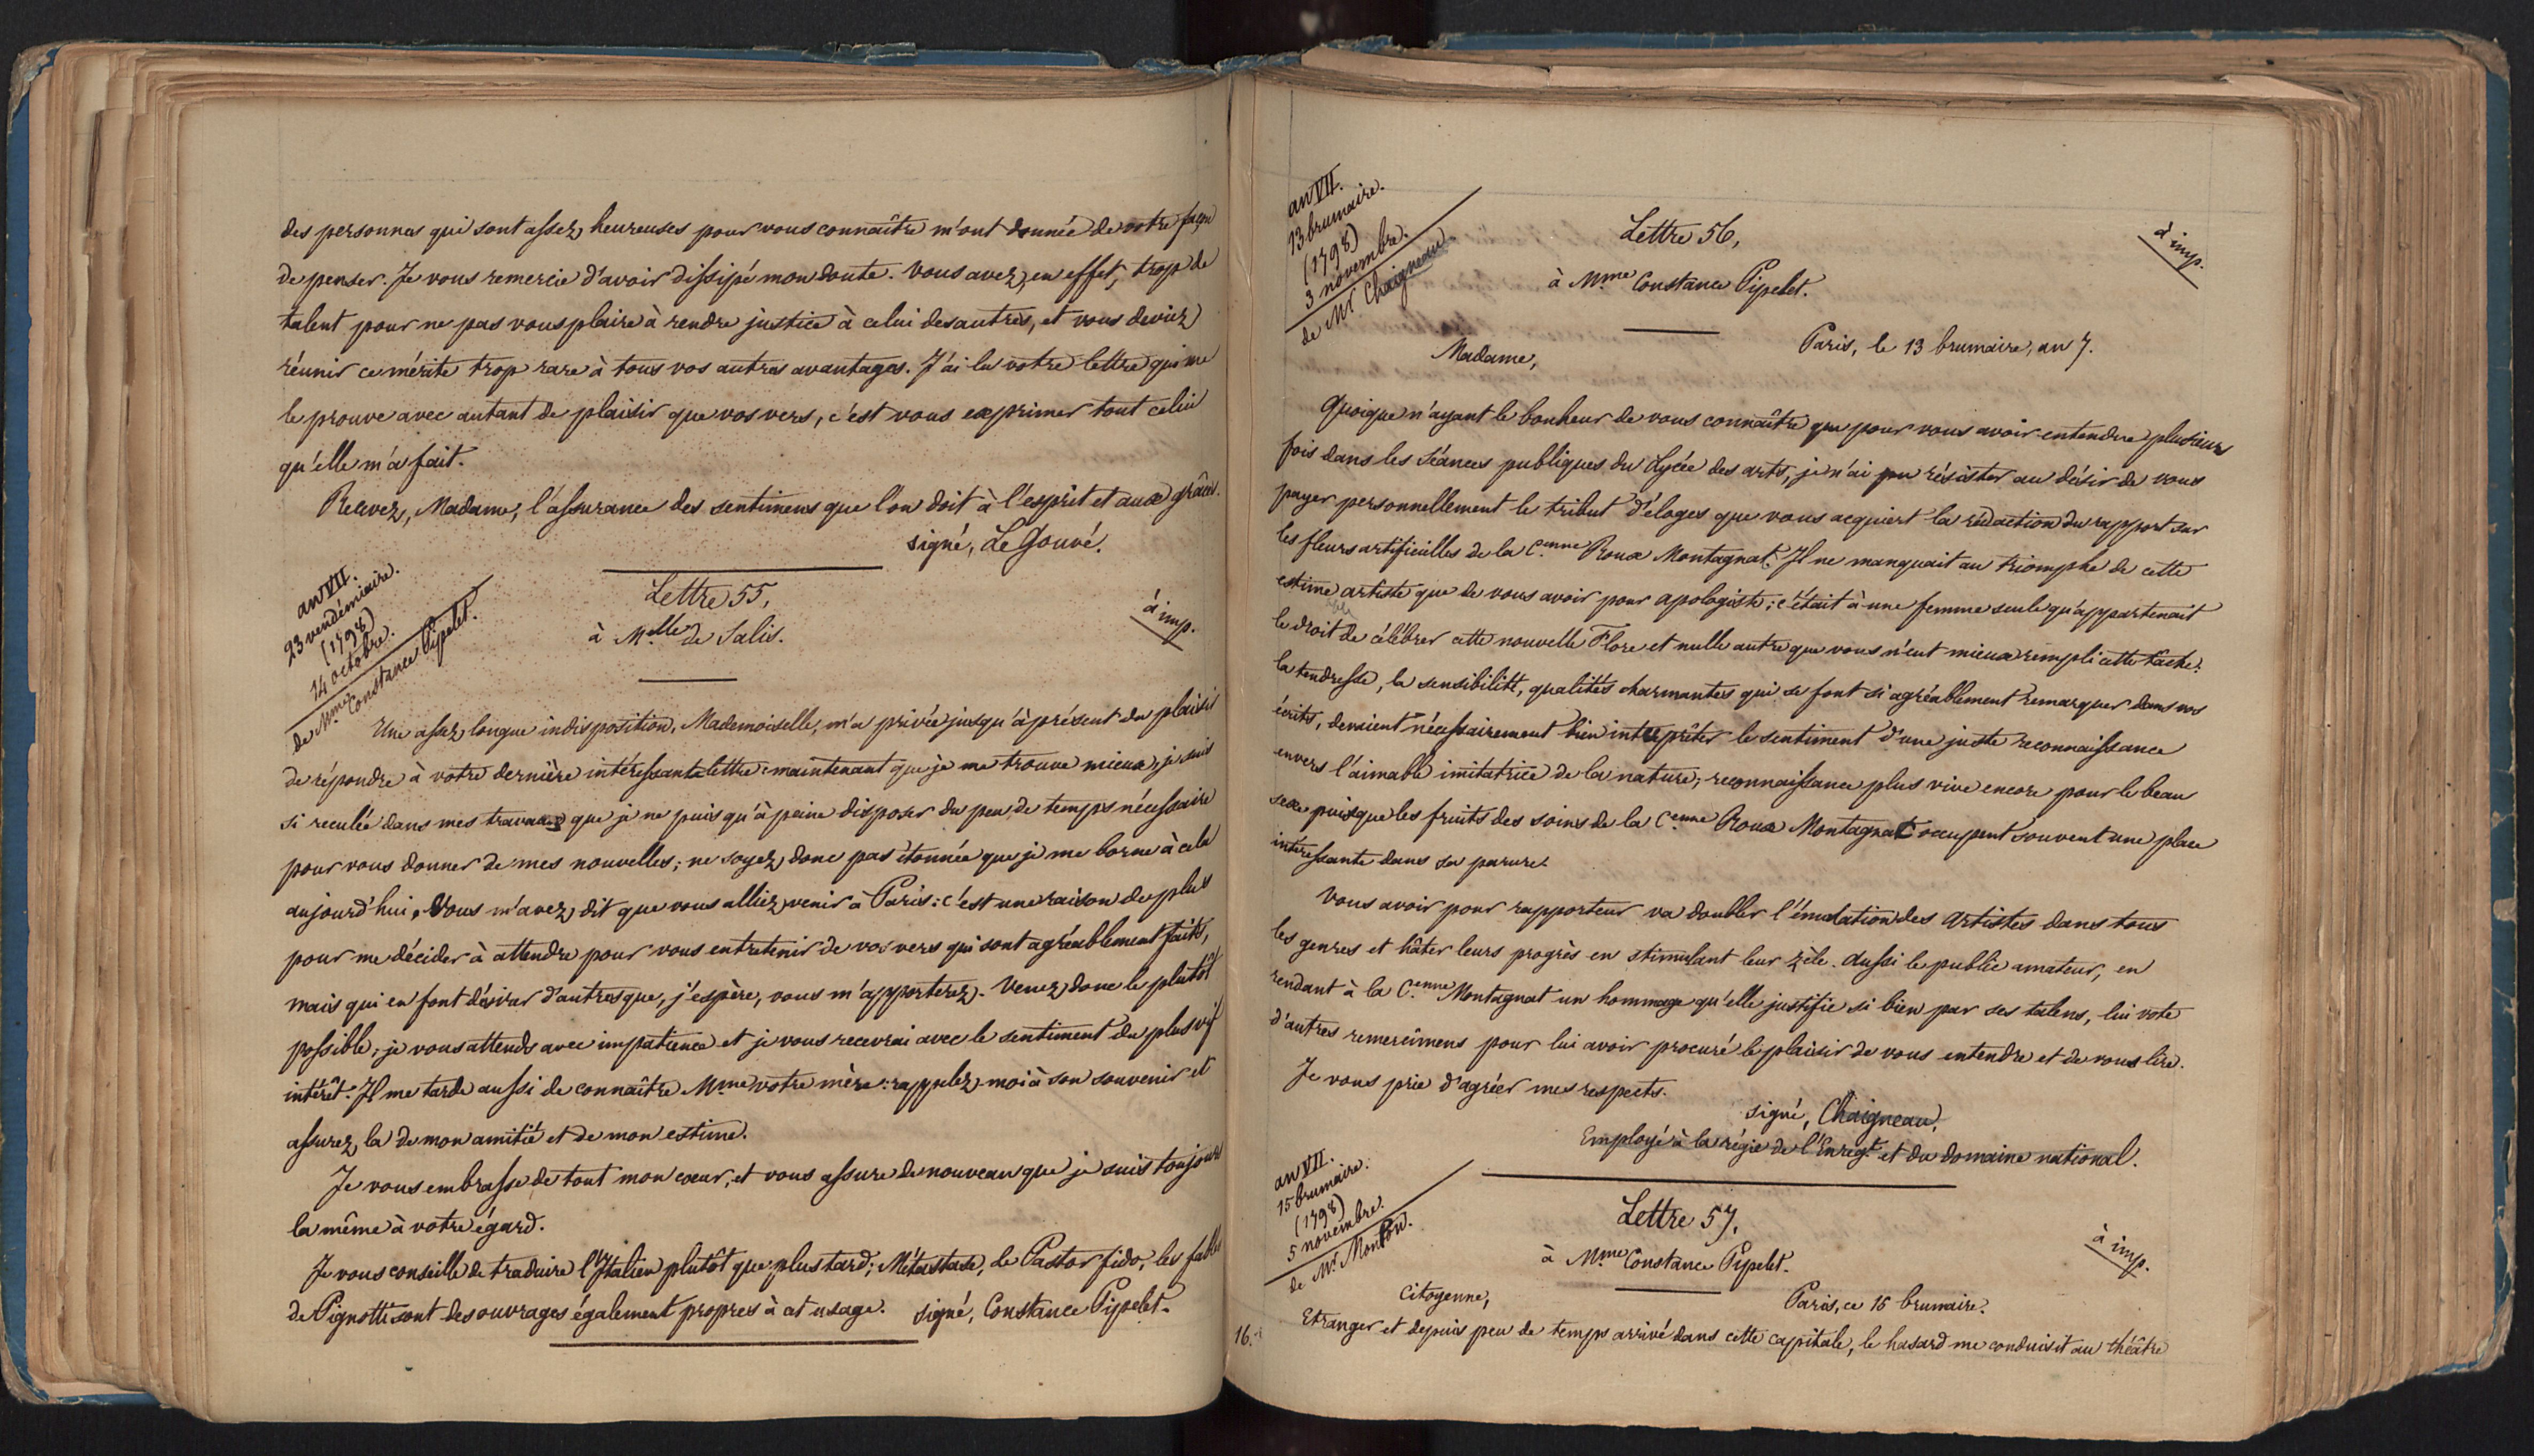 des personnes qui sont assez heureuses pour vous connaître m'ont donnée de votre façon
de penser. Je vous remercie d'avoir dissipé mon doute. Vous avez, en effet, trop de
talent pour ne pas vous plaire à rendre justice à celui des autres, et vous deviez
réunir ce mérite trop rare à tous vos autres avantages. J'ai lu votre lettre qui me
le prouve avec autant de plaisir que vos vers, c'est vous exprimer tout celui
qu'elle m'a fait.
Recevez, Madame, l'assurance des sentimens que l'on doit à l'esprit et aux grâces.
signé, Le Gouvé.
an VII.
23 vendémiaire.
(1798)
14 octobre.
de Mme Constance Pipelet.
Lettre 55,
à Melle de Salis.
à imp.
Une assez longue indisposition, Mademoiselle, m'a privée jusqu'à présent du plaisir
de répondre à votre dernière intéressante lettre: maintenant que je me trouve mieux, je suis
si reculée dans mes travaux que je ne puis qu'à peine disposer du peu de temps nécessaire
pour vous donner de mes nouvelles; ne soyez donc pas étonnée que je me borne à cela
aujourd'hui. Vous m'avez dit que vous alliez venir à Paris: c'est une raison de plus
pour me décider à attendre pour vous entretenir de vos vers qui sont agréablement faits,
mais qui en font désirer d'autres que, j'espère, vous m'apporterez. Venez donc le plutôt
possible; je vous attends avec impatience et je vous recevrai avec le sentiment du plus vif
intérêt. Il me tarde aussi de connaître Mme votre mère: rappelez-moi à son souvenir et
assurez la de mon amitié et de mon estime.
Je vous embrasse de tout mon cœur, et vous assure de nouveau que je suis toujours
la même à votre égard.
Je vous conseille de traduire l'Italien plutôt que plus tard; Métastase, le Pastor fido, les fables
de Pignotti sont des ouvrages également propres à cet usage. signé, Constance Pipelet.
an VII.
13 brumaire.
(1798)
3 novembre.
de Mr Chaigneau
Lettre 56,
à Mme Constance Pipelet.
à imp.
Paris, le 13 brumaire, an 7.
Madame,
Quoique n'ayant le bonheur de vous connaître que pour vous avoir entendue plusieurs
fois dans les séances publiques du Lycée des arts, je n'ai pu résister au désir de vous
payer personnellement le tribut d'éloges que vous acquiert la rédaction du rapport sur
les fleurs artificielles de la Cenne Roux Montagnat. Il ne manquait au triomphe de cette
estime artiste que de vous avoir pour apologiste; c'était à une femme seule qu'appartenait
le droit de célébrer cette nouvelle Flore et nulle autre que vous n'eut mieux rempli cette tâche.
la tendresse, la sensibilité, qualités charmantes qui se font si agréablement remarquer dans vos
écrits, devaient nécessairement bien interprêter le sentiment d'une juste reconnaissance
envers l'aimable imitatrice de la nature; reconnaissance plus vive encore pour le beau
sexe puisque les fruits des soins de la Cenne Roux Montagnat occupent souvent une place
intéressante dans sa parure.
Vous avoir pour rapporteur va doubler l'émulation des artistes dans tous
les genres et hâter leurs progrès en stimulant leur zèle. Aussi le public amateur, en
rendant à la Cenne Montagnat un hommage qu'elle justifie si bien par ses talens, lui vote
d'autres remercîmens pour lui avoir procuré le plaisir de vous entendre et de vous lire.
Je vous prie d'agréer mes respects.
signé, Chaigneau,
Employé à la régie de l'Enregt et du domaine national.
an VII.
15 brumaire.
(1798)
5 novembre.
de Mr
Lettre 57,
à Mme Constance Pipelet.
à imp.
Paris, ce 15 brumaire.
Citoyenne,
Etranger et depuis peu de temps arrivé dans cette capitale, le hasard me conduisit au théâtre
16.